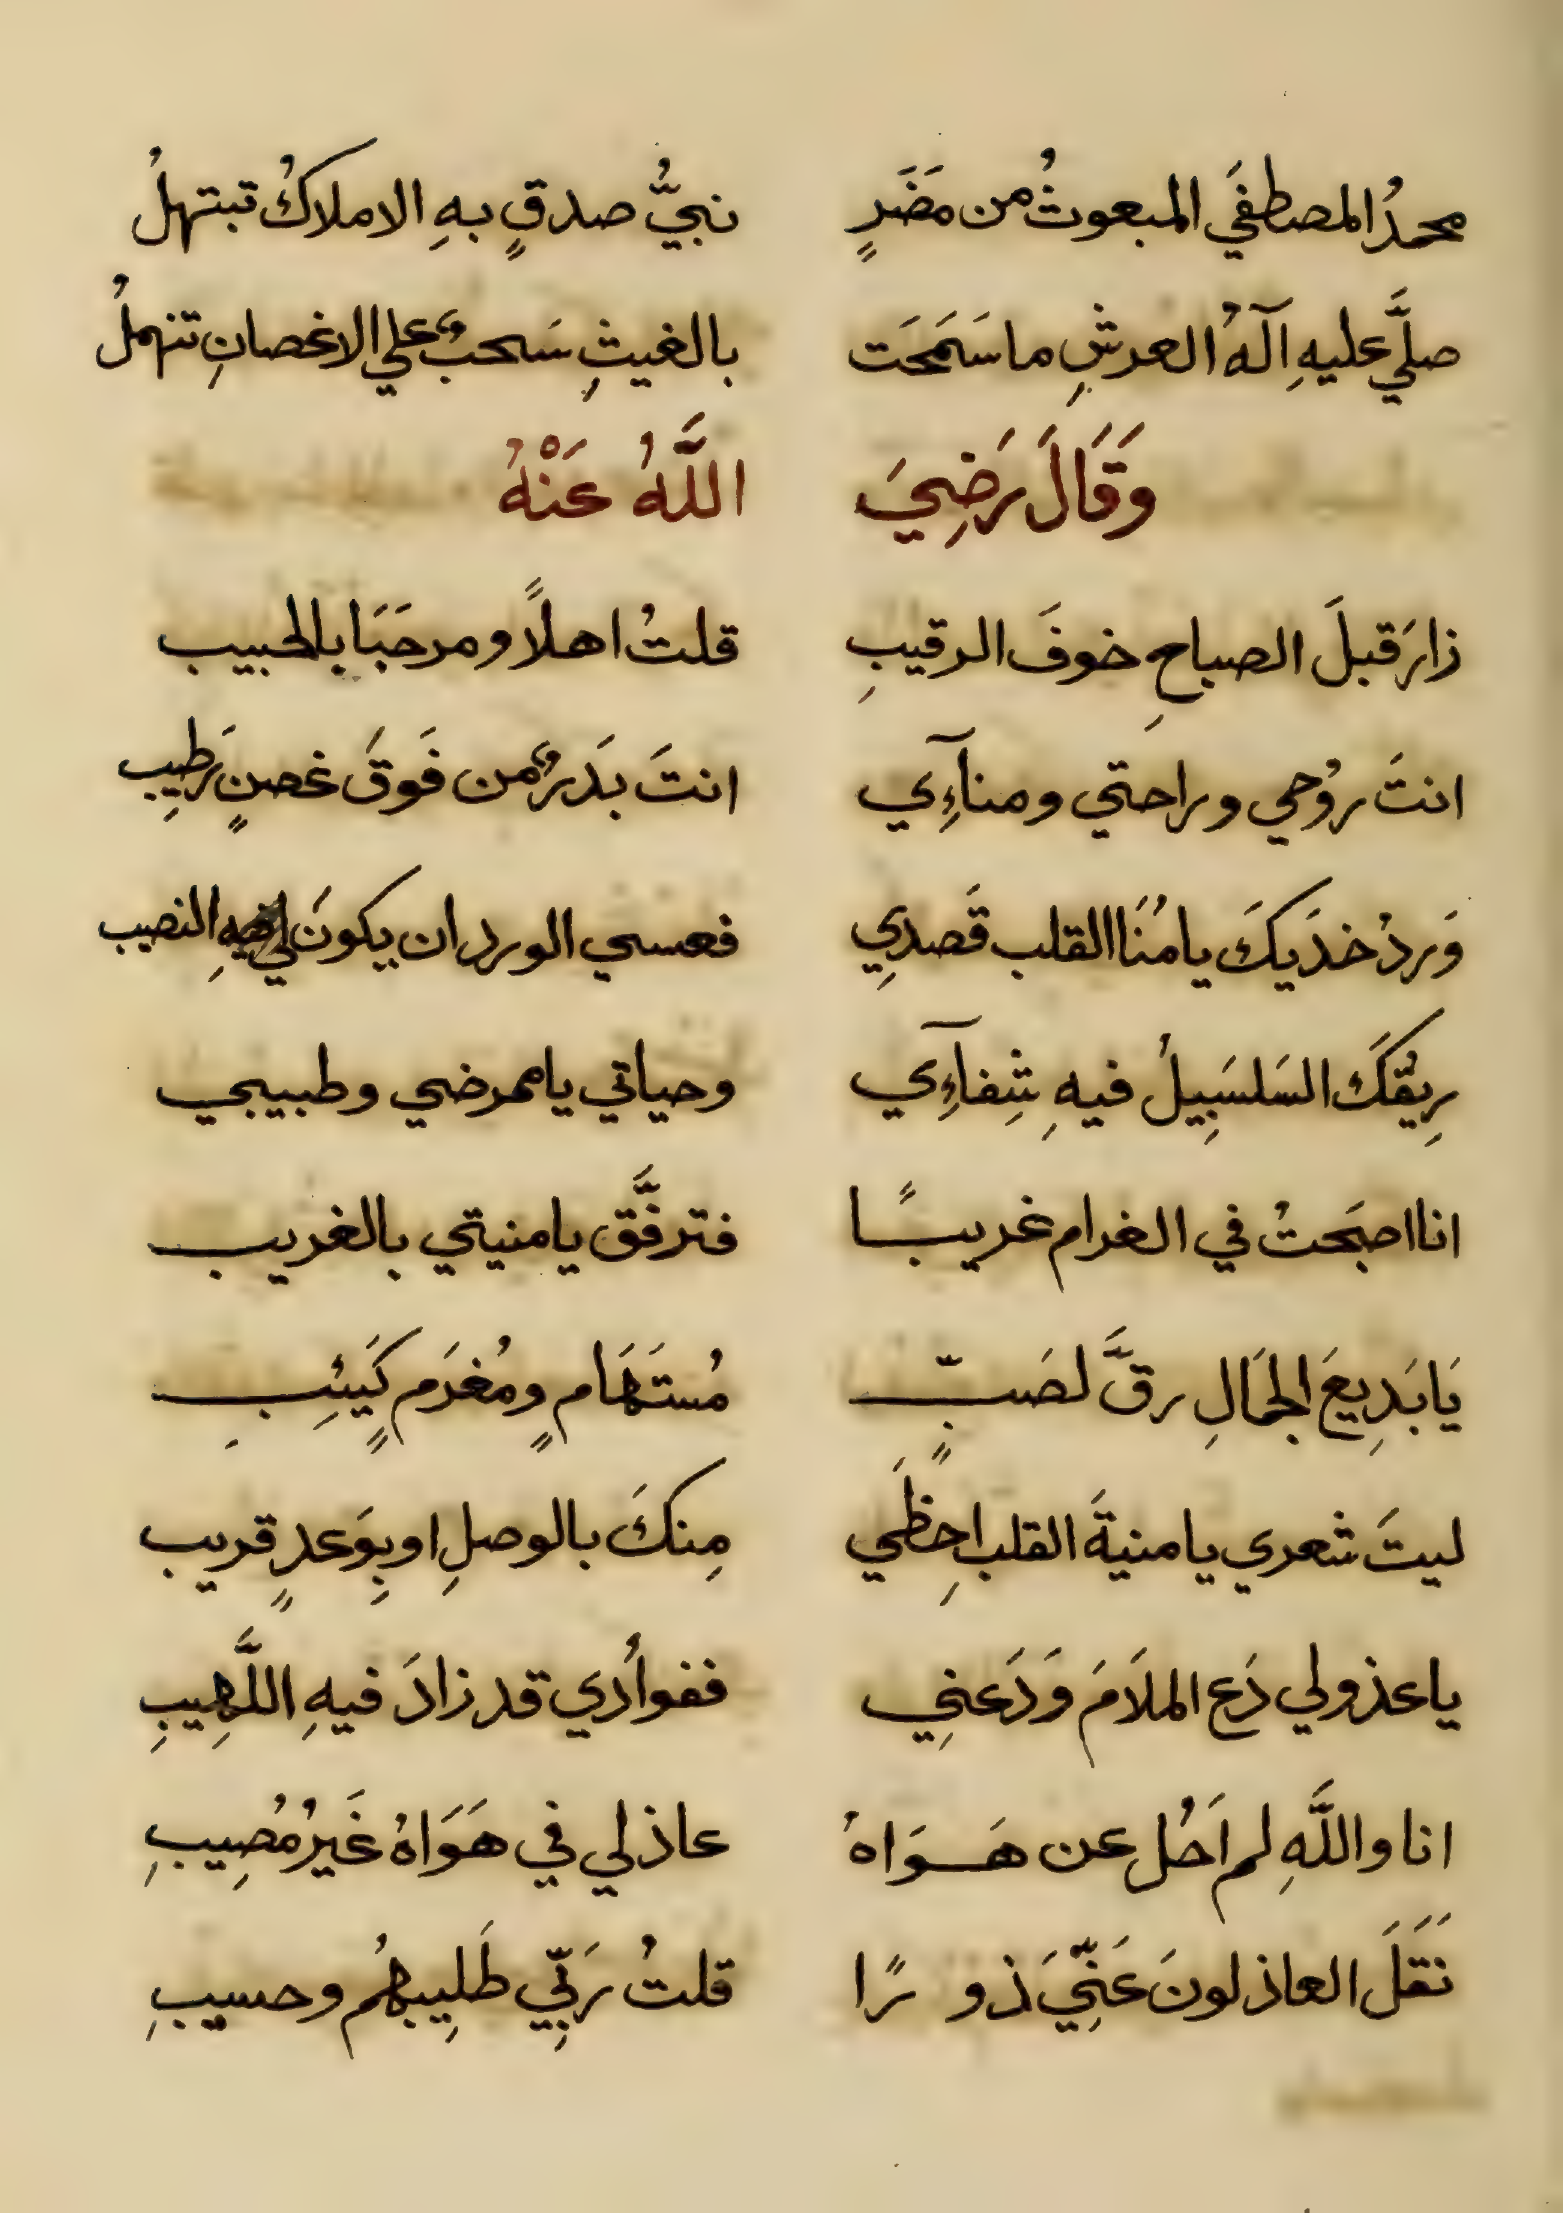 محمدُ المصطفَي المبعوثُ من مَضَرٍ نبيُّ صدقٍ بهِ الاملاكُ تبتهلُ
صلَّي عليهِ آلهُ العرشِ ما سَمَحَت بالغيثِ سَحبٌ علي الاغصانِ تنهملُ
وَقَالَ رَضِيَ اللَّهُ عَنْهُ
زارَ قبلَ الصباحِ خوفَ الرقيبِ قلتُ اهلاً ومرحَبَا بالحبيب
انتَ رُوحي وراحتي ومنآءِي انتَ بَدرٌ من فَوقَ غصنٍ رَطِيب
وَردُ خدَيكَ يا مُنَا القلب قَصدِي فعسي الورد ان يكونَ لي فيهِ النصيب
رِيقُكَ السَلسَبِيلُ فيهِ شِفآءِي وحياتي يا ممرضي وطبيبي
انا اصبَحتُ في الغرام غريبًا فترفَّق يا منيتي بالغريب
يَا بَدِيعَ الجَمَالِ رقَّ لصَبٍّ مُستَهَامٍ ومُغرَمٍ كَيئِبِ
ليتَ شعري يا منيةَ القلب احِظَي مِنكَ بالوصلِ او بِوَعدٍ قريب
يا عذولي دَع الملاَمَ وَدَعنِي ففواُدي قد زادَ فيهِ اللَّهِيبِ
انا واللَّهِ لم اَحُل عن هَوَاهُ عاذلي في هَوَاهُ غَيرُ مُصِيبِ
نَقَلَ العاذلونَ عَنِّيَ ذورًا قلتُ رَبِّي طَلِيبهُم وحسيبِ